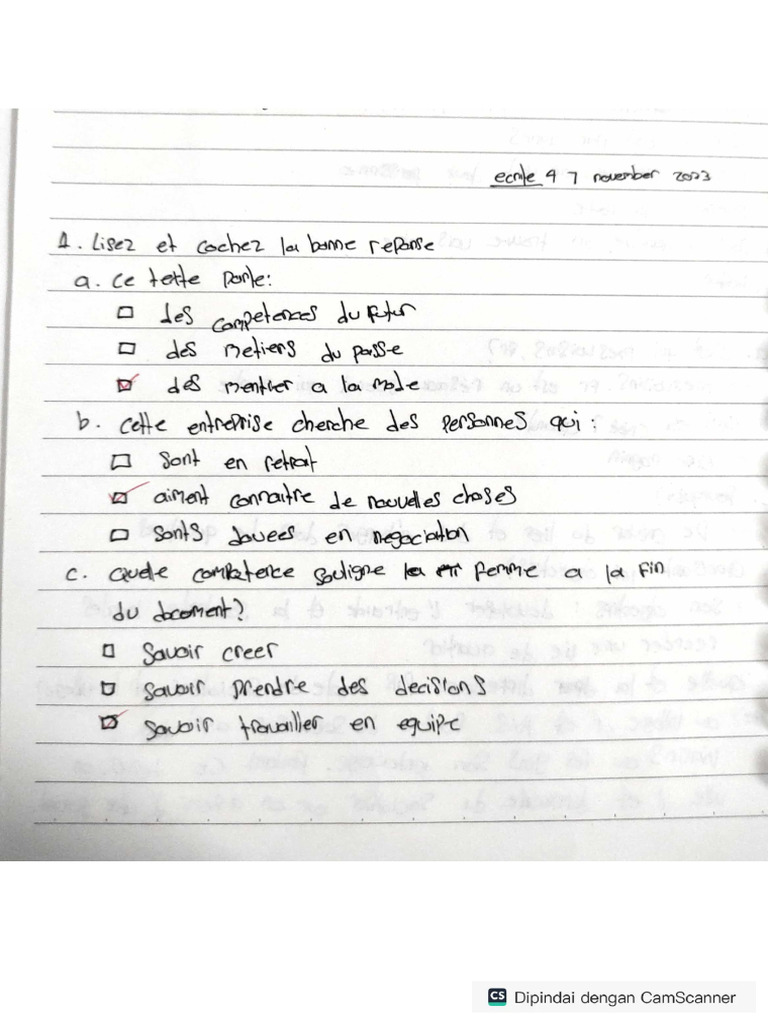 ecrite 4 7 november 2023
1. Lisez et cochez la bonne reponse
a. Ce tette parle:
☐ des competences du futur
☐ des metiers du passe
☑ des mentier a la mode
b. Cette entreprise cherche des personnes qui :
☐ sont en retrait
☑ aiment connaitre de nouvelles choses
☐ sonts douees en negociation
c. Quelle competence souligne la femme a la fin
du document?
☐ Savoir creer
☐ savoir prendre des decisions
☑ savoir travailler en equipe
CS Dipindai dengan CamScanner